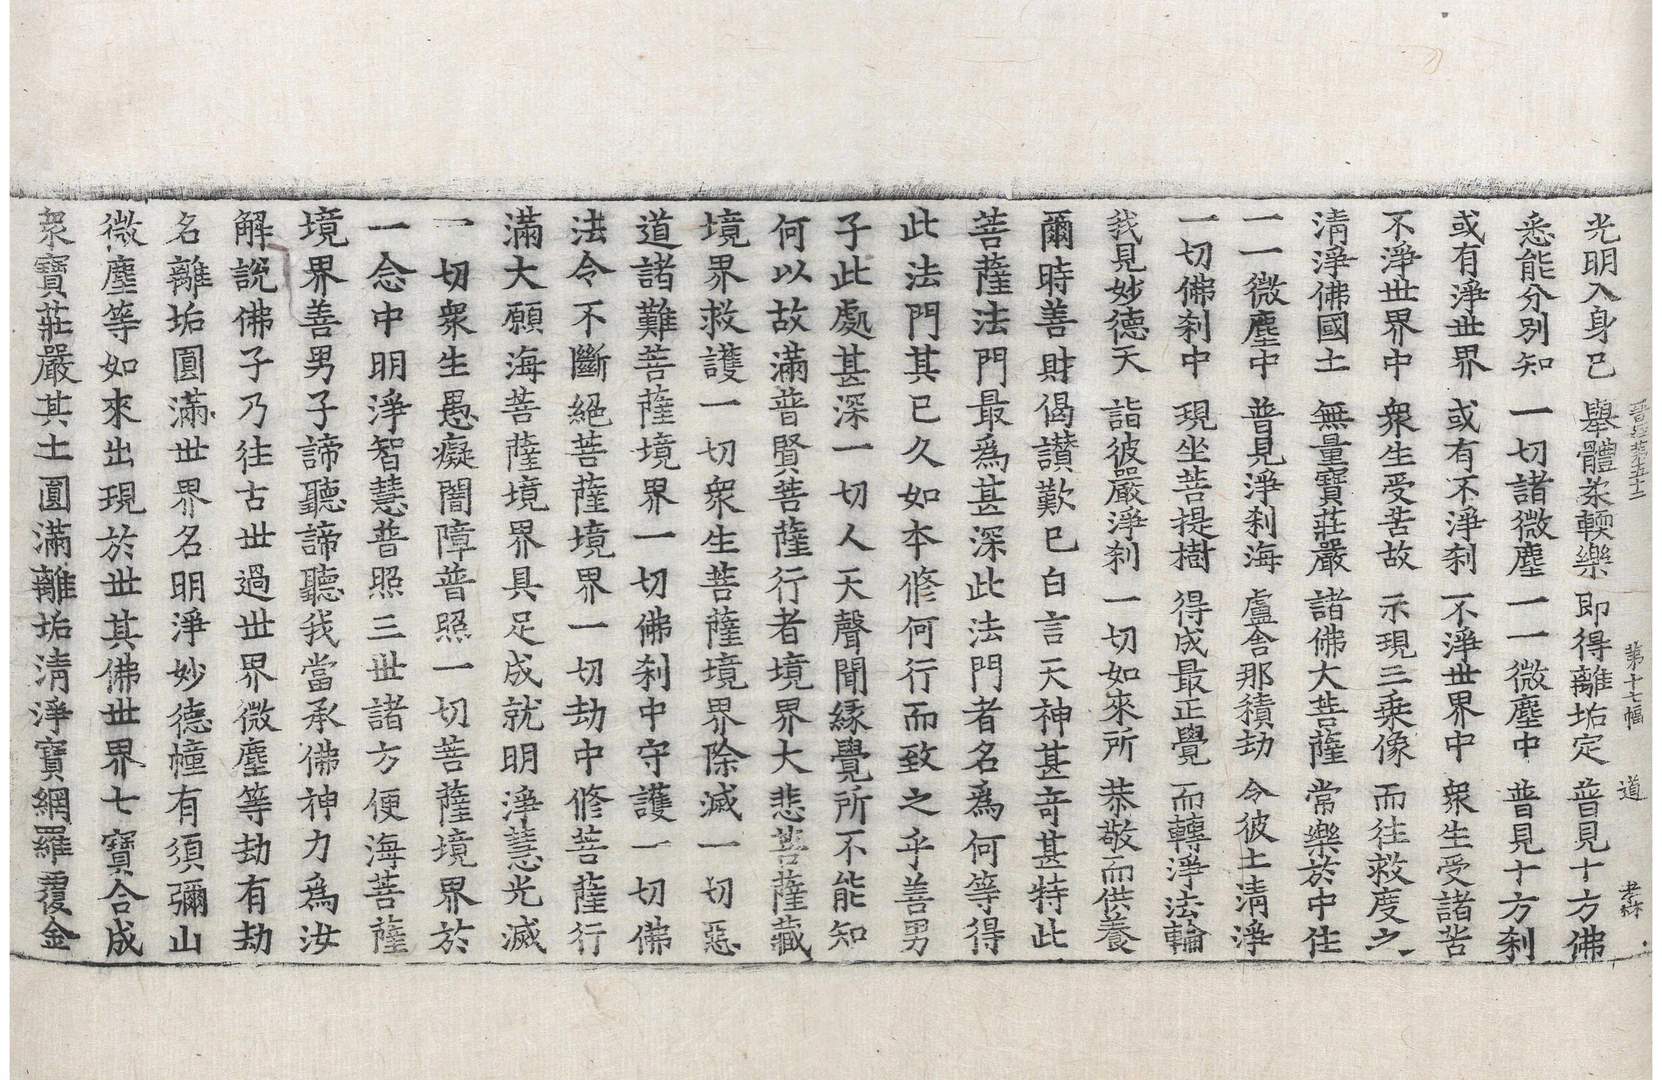 晉經第五十二 第十七幅 道 孝林
光明入身已 舉體柔輭樂 即得離垢定 普見十方佛
悉能分別知 一切諸微塵 一一微塵中 普見十方刹
或有淨世界 或有不淨刹 不淨世界中 衆生受諸苦
不淨世界中 衆生受苦故 示現三乗像 而往救度之
清淨佛國土 無量寶莊嚴 諸佛大菩薩 常樂於中住
一一微塵中 普見淨刹海 盧舍那積劫 令彼土清淨
一切佛刹中 現坐菩提樹 得成最正覺 而轉淨法輪
我見妙德天 詣彼嚴淨刹 一切如來所 恭敬而供養
爾時善財偈讃歎已白言天神甚竒甚特此
菩薩法門最爲甚深此法門者名爲何等得
此法門其已久如本修何行而致之乎善男
子此處甚深一切人天聲聞縁覺所不能知
何以故滿普賢菩薩行者境界大悲菩薩藏
境界救護一切衆生菩薩境界除滅一切惡
道諸難菩薩境界一切佛刹中守護一切佛
法令不斷絕菩薩境界一切劫中修菩薩行
滿大願海菩薩境界具足成就明淨慧光滅
一切衆生愚癡闇障普照一切菩薩境界於
一念中明淨智慧普照三世諸方便海菩薩
境界善男子諦聽諦聽我當承佛神力爲汝
解説佛子乃往古世過世界微塵等劫有劫
名離垢圓滿世界名明淨妙德幢有須彌山
微塵等如來出現於世其佛世界七寶合成
衆寶莊嚴其土圓滿離垢清淨寶網羅覆金